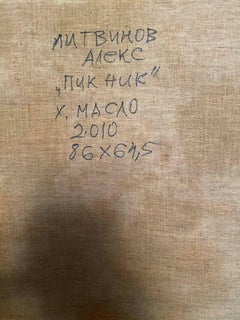 ЛИТВИНОВ
АЛЕКС
„ПИКНИК“
Х. МАСЛО
2.010
86х61,5